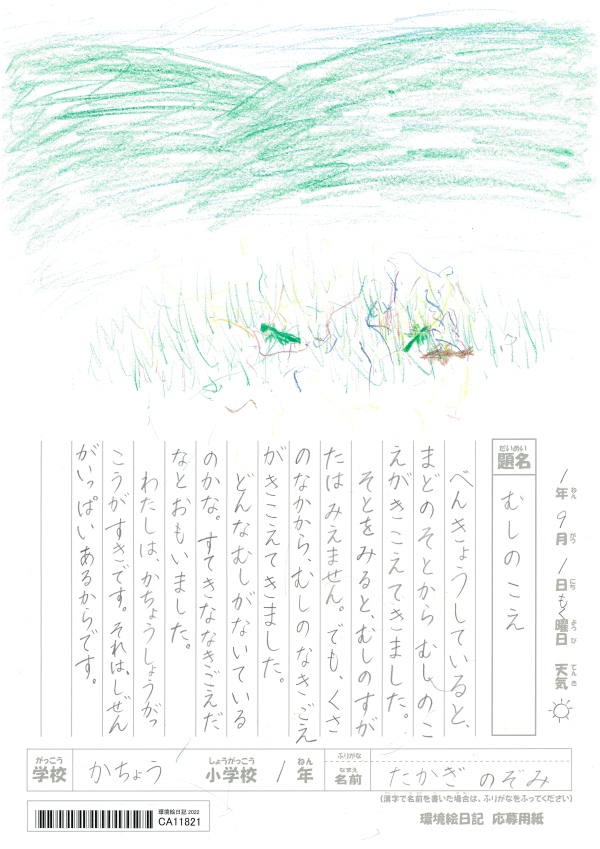 1年 9月 1日 もく曜日 天気
ねん がつ にち ようび てんき
だいめい
題名
むしのこえ
べんきょうしていると、
まどのそとからむしのこ
えがきこえてきました。
そとをみると、むしのすが
たはみえません。でも、くさ
のなかから、むしのなきごえ
がきこえてきました。
どんなむしがないている
のかな。すてきななきごえだ
なとおもいました。
わたしは、かちょうしょうがっ
こうがすきです。それは、しぜん
がいっぱいあるからです。
がっこう
学校
かちょう
しょうがっこう
小学校
1
ねん
年
ふりがな
なまえ
名前
たかぎ のぞみ
(漢字で名前を書いた場合は、ふりがなをふってください)
環境絵日記 2022
CA11821
環境絵日記 応募用紙